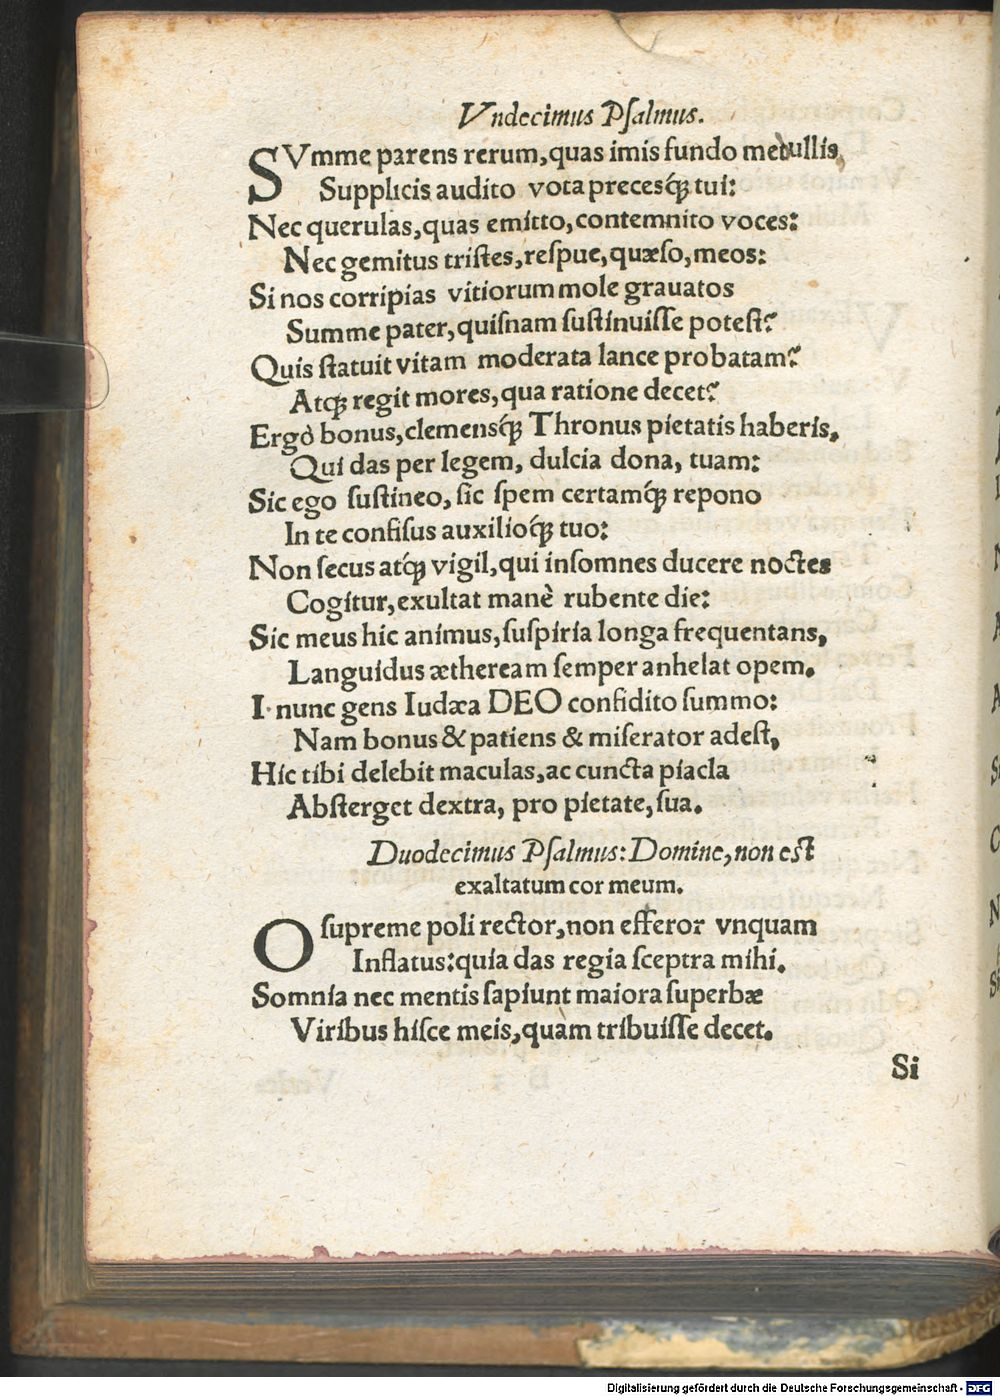 Vndecimus Pſalmus.
SVmme parens rerum,quas imis fundo medullis,
Supplicis audito vota precesq́ꝫ tui:
Nec querulas,quas emitto,contemnito voces:
Nec gemitus triſtes,reſpue,quæſo,meos:
Si nos corripias vitiorum mole grauatos
Summe pater,quiſnam ſuſtinuiſſe poteſt?
Quis ſtatuit vitam moderata lance probatam?
Atqꝫ regit mores,qua ratione decet?
Ergò bonus,clemensq́ꝫ Thronus pietatis haberis,
Qui das per legem, dulcia dona, tuam:
Sic ego ſuſtineo, ſic ſpem certamq́ꝫ repono
In te confiſus auxilioq́ꝫ tuo:
Non ſecus atq́ꝫ vigil,qui inſomnes ducere noctes
Cogitur,exultat manè rubente die:
Sic meus hic animus,ſuſpiria longa frequentans,
Languidus ætheream ſemper anhelat opem.
I nunc gens Iudæa DEO confidito ſummo:
Nam bonus & patiens & miſerator adeſt,
Hic tibi delebit maculas,ac cuncta piacla
Abſterget dextra, pro pietate,ſua.
Duodecimus Pſalmus: Domine,non eſt
exaltatum cor meum.
O ſupreme poli rector,non efferor vnquam
Inflatus:quia das regia ſceptra mihi.
Somnia nec mentis ſapiunt maiora ſuperbæ
Viribus hiſce meis,quam tribuiſſe decet.
Si
Digitalisierung gefördert durch die Deutsche Forschungsgemeinschaft - DFG